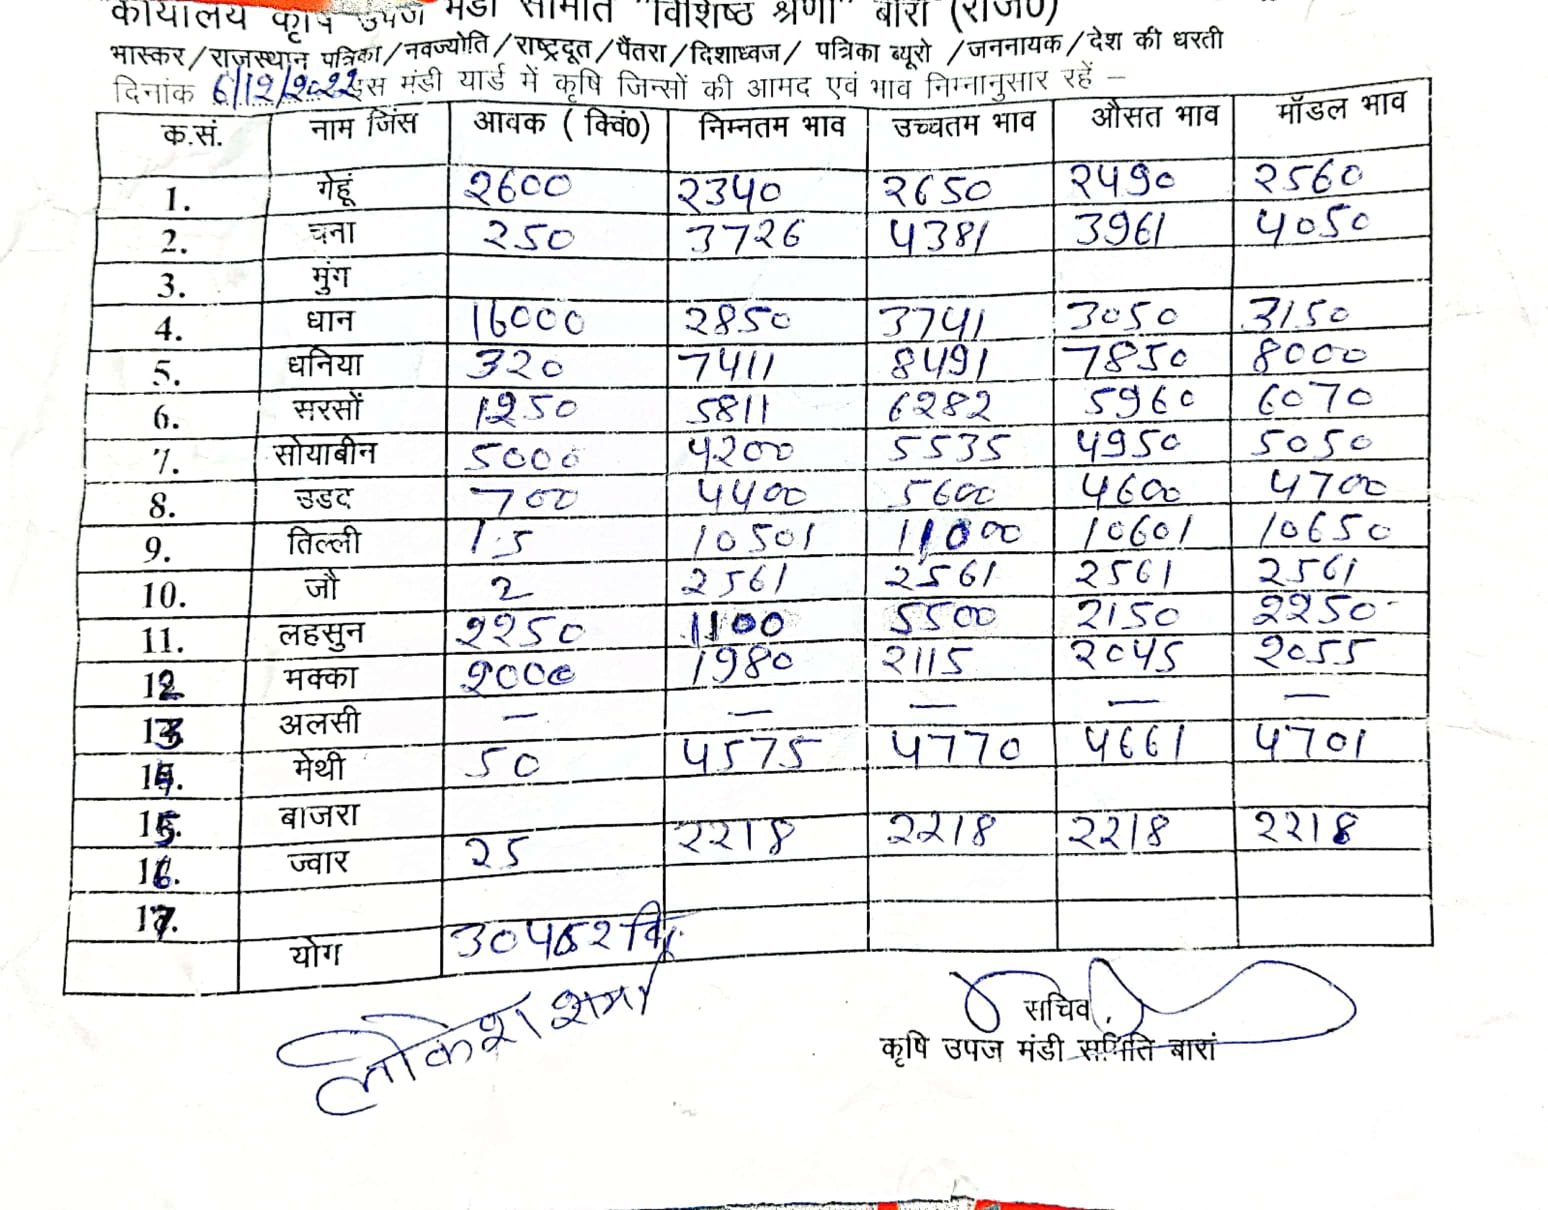 कार्यालय कृषि उपज मंडी समिति "विशिष्ठ श्रेणी" बारां (राज0)
भास्कर/राजस्थान पत्रिका/नवज्योति/राष्ट्रदूत/पैंतरा/दिशाध्वज/ पत्रिका ब्यूरो /जननायक/देश की धरती
दिनांक 6/12/2022 इस मंडी यार्ड में कृषि जिन्सों की आमद एवं भाव निम्नानुसार रहें –
क.सं. नाम जिंस आवक ( क्विं0) निम्नतम भाव उच्चतम भाव औसत भाव मॉडल भाव
1. गेहूं 2600 2340 2650 2490 2560
2. चना 250 3726 4381 3961 4050
3. मुंग
4. धान 16000 2850 3741 3050 3150
5. धनिया 320 7411 8491 7850 8000
6. सरसों 1250 5811 6282 5960 6070
7. सोयाबीन 5000 4200 5535 4950 5050
8. उडद 700 4400 5600 4600 4700
9. तिल्ली 1.5 10501 11000 10601 10650
10. जौ 2 2561 2561 2561 2561
11. लहसुन 2250 1100 5500 2150 2250
12 मक्का 2000 1980 2115 2045 2055
13 अलसी — — — — —
14. मेथी 50 4575 4770 4661 4701
15. बाजरा
16. ज्वार 25 2218 2218 2218 2218
17.
योग
लोकेश शर्मा
सचिव
कृषि उपज मंडी समिति बारां